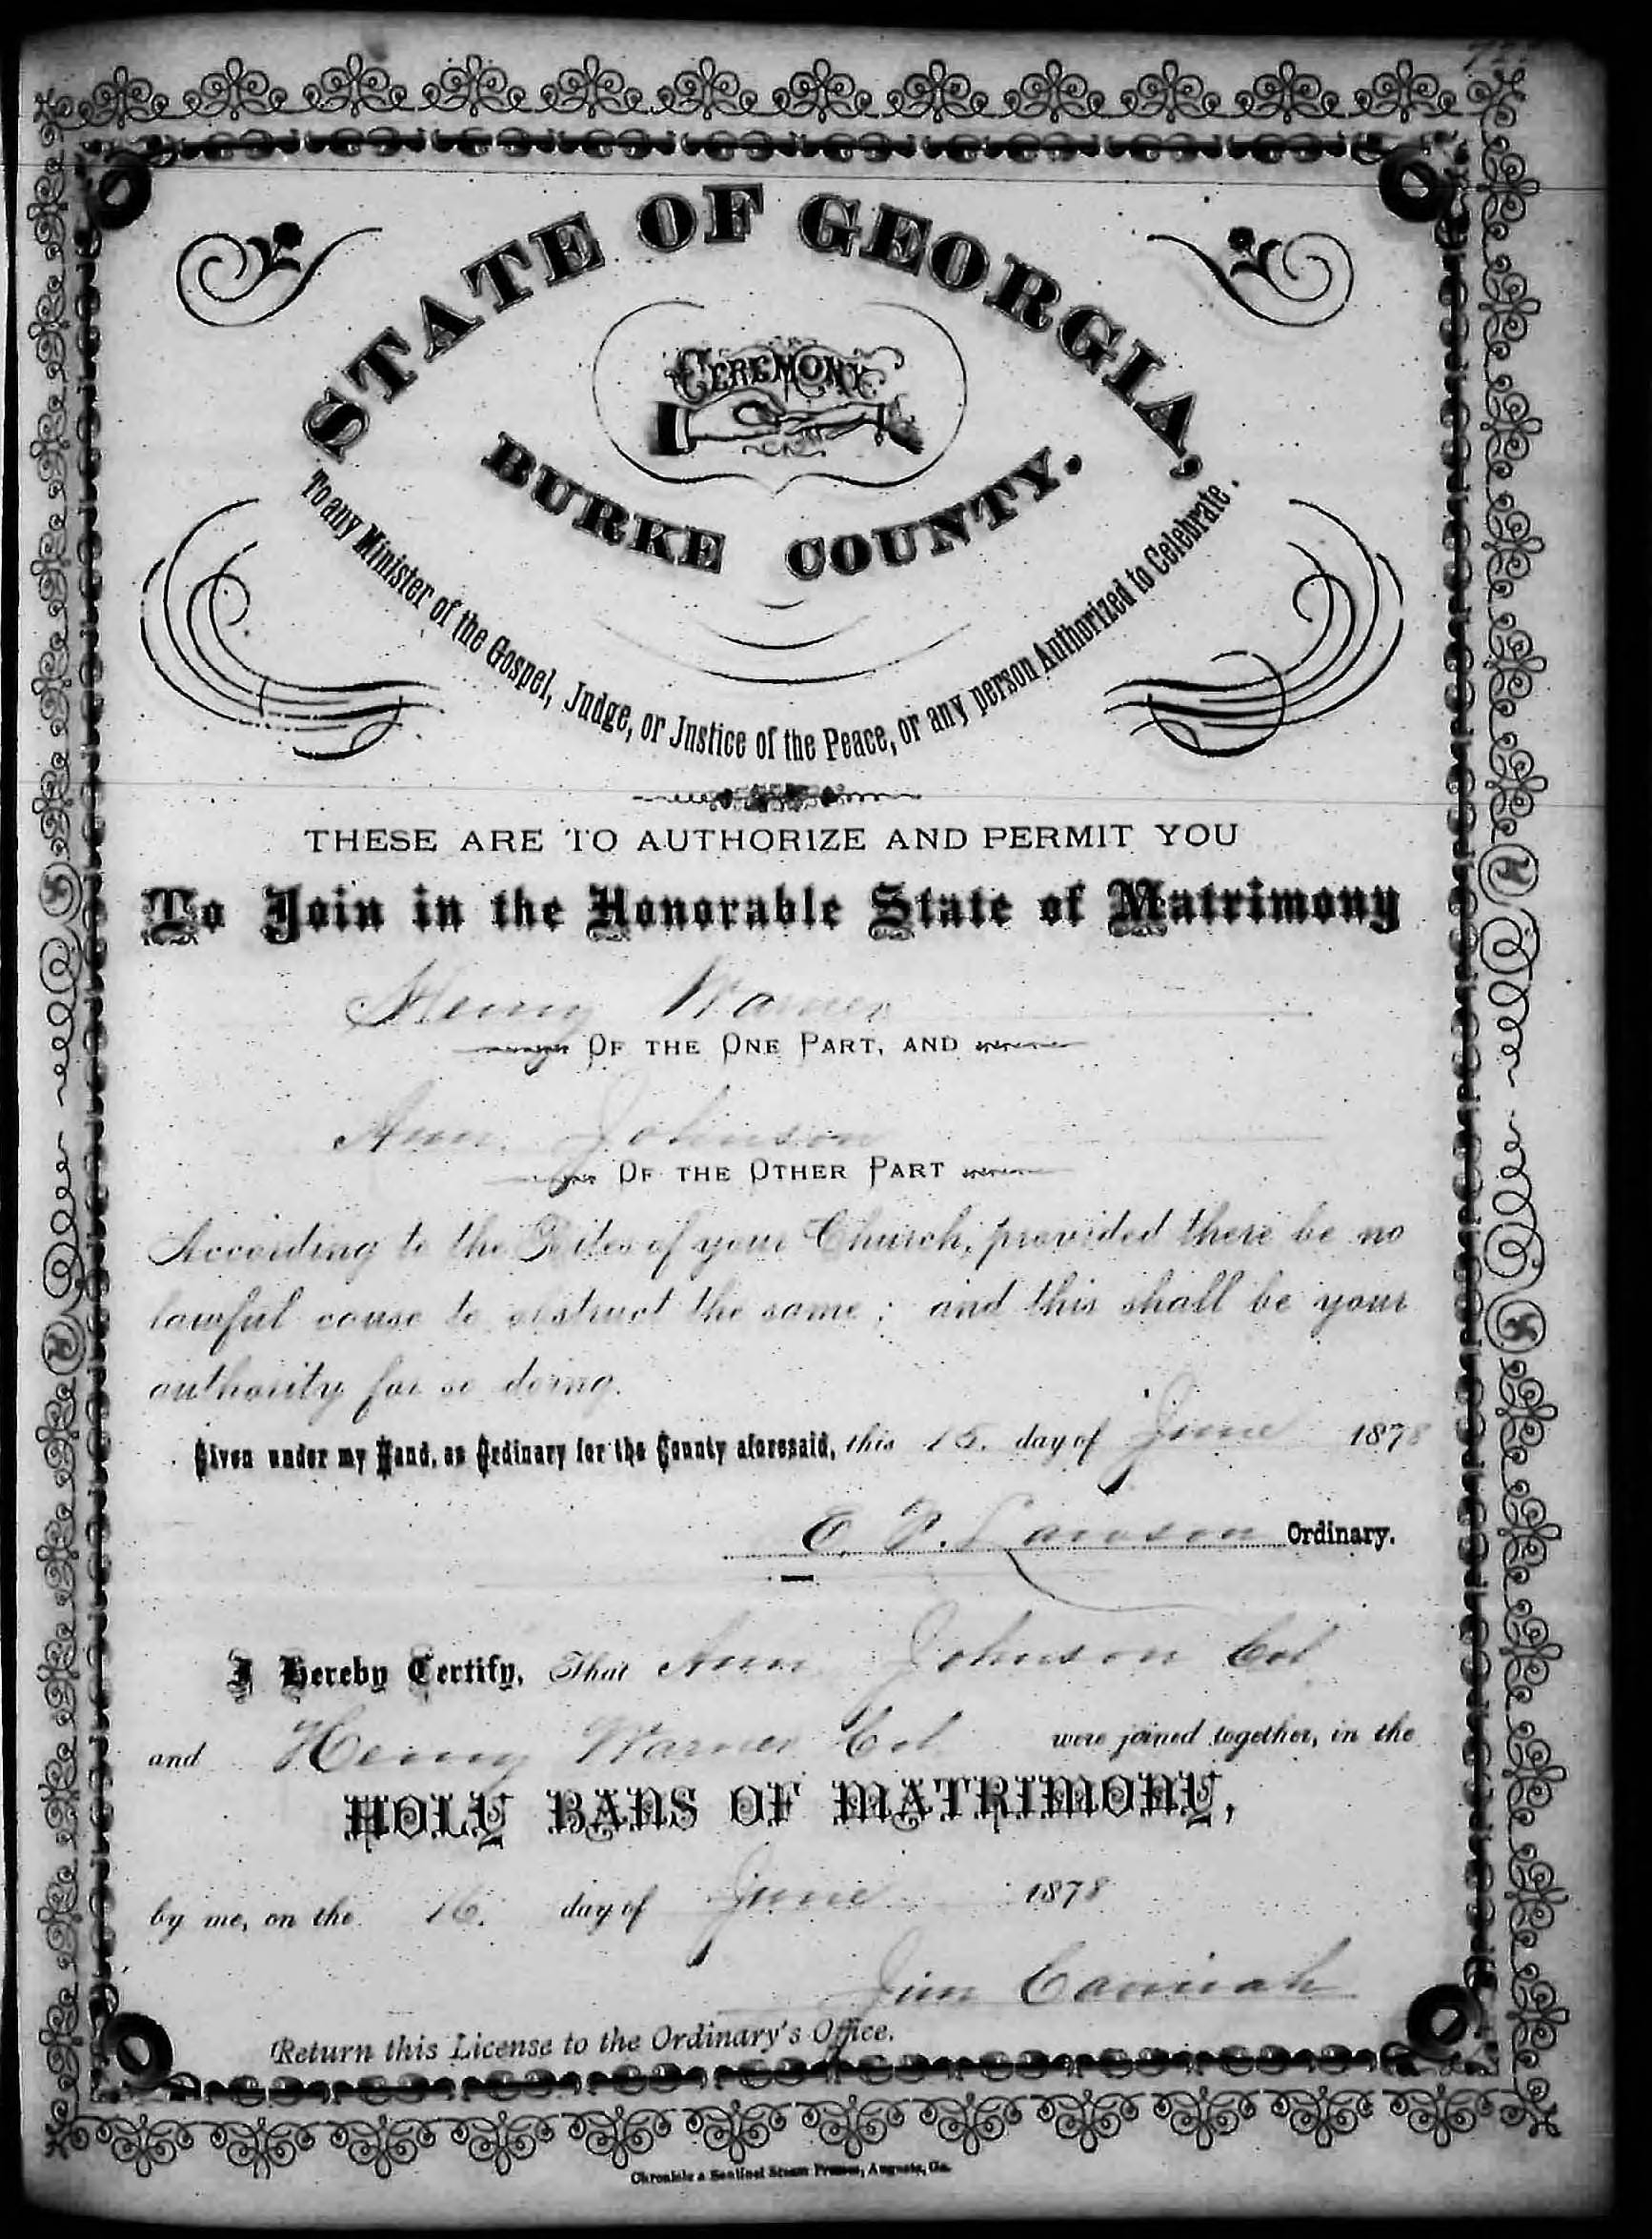 STATE OF GEORGIA,
CEREMONY
BURKE COUNTY.
To any Minister of the Gospel, Judge, or Justice of the Peace, or any person Authorized to Celebrate.
THESE ARE TO AUTHORIZE AND PERMIT YOU
To Join in the Honorable State of Matrimony
Henry Warner
OF THE ONE PART, AND
Ann Johnson
OF THE OTHER PART
According to the Rites of your Church, provided there be no
lawful cause to obstruct the same; and this shall be your
authority for so doing.
Given under my Hand, as Ordinary for the County aforesaid, this 15. day of June 1878
E. P. Lawson Ordinary.
I Hereby Certify, That Ann Johnson Col
and Henry Warner Col were joined together, in the
HOLY BANS OF MATRIMONY,
by me, on the 16. day of June 1878
Jim
Return this License to the Ordinary's Office.
Chronicle & Sentinel Steam Presses, Augusta, Ga.